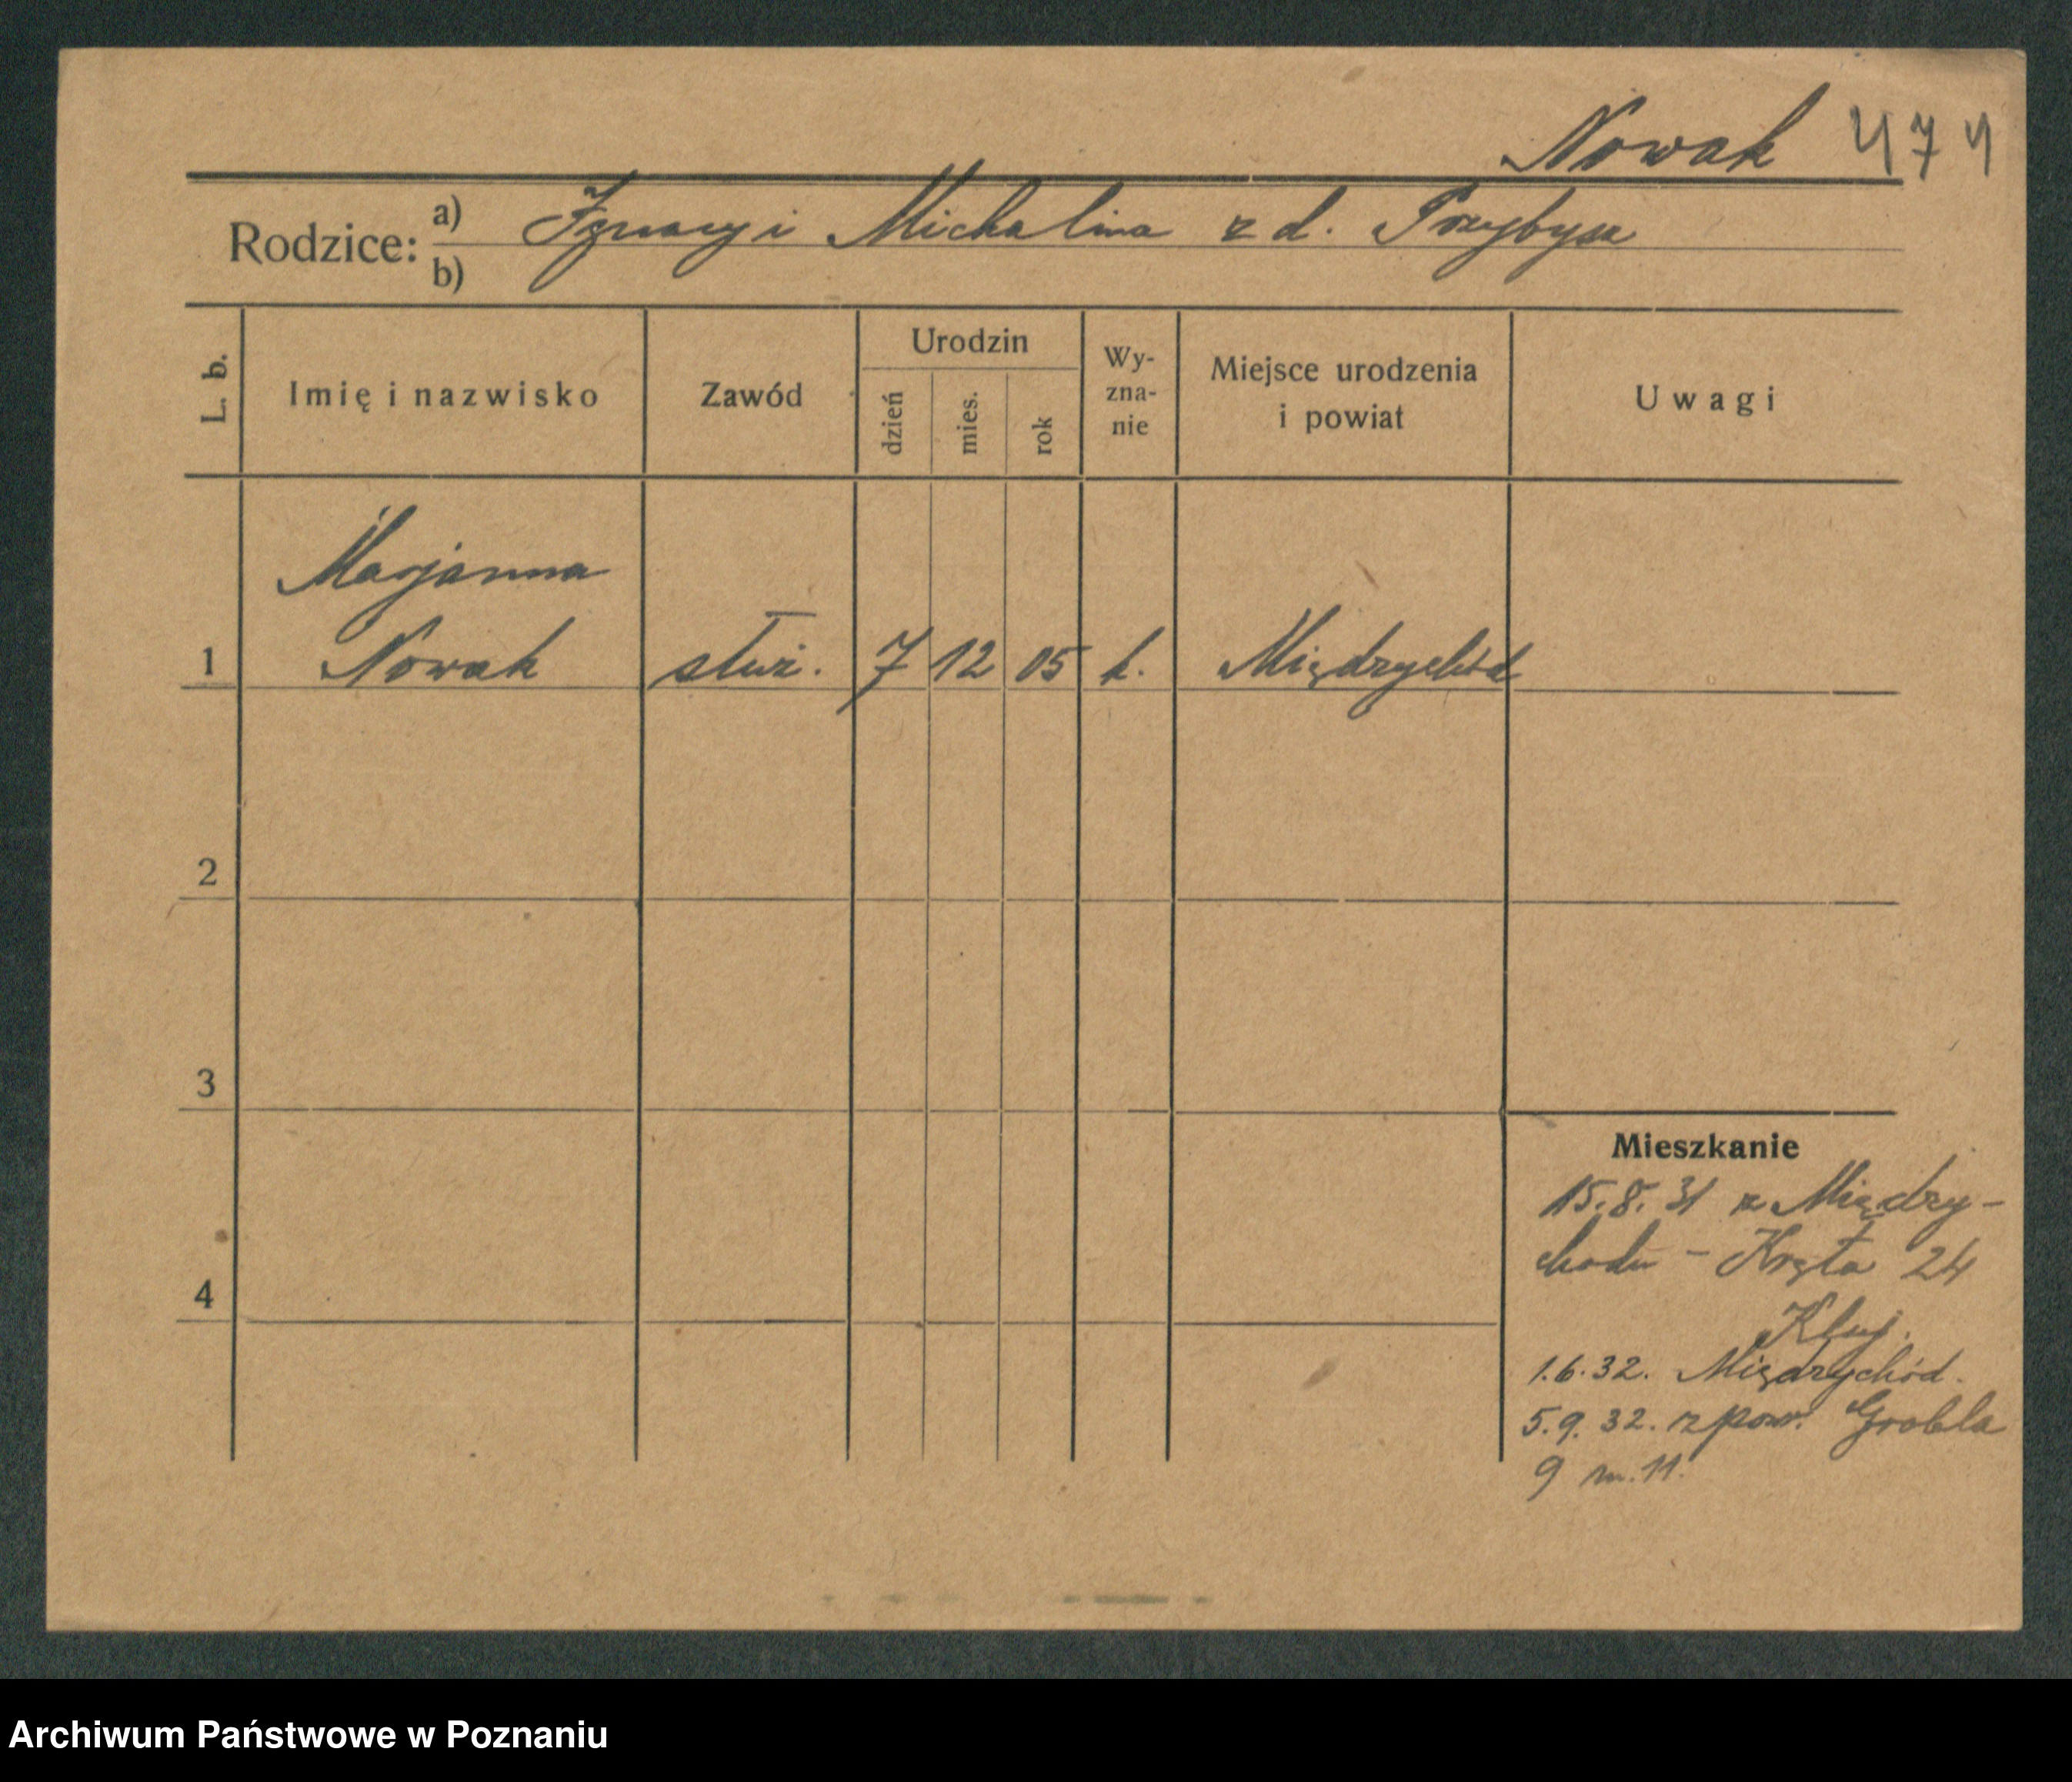 Nowak 474
Rodzice: a) Ignacy i Michalina z d. Przybysz
b)
L. b. Imię i nazwisko Zawód Urodzin dzień mies. rok Wy-zna-nie Miejsce urodzenia i powiat Uwagi
Marjanna
1 Nowak służ. 7 12 05 k. Międzychód
2
3
4
Mieszkanie
15.8.31 z Między-
chodu - Kręta 24
1.6.32. Międzychód.
5.9.32. z pow. Grobla
9 m. 11.
Archiwum Państwowe w Poznaniu